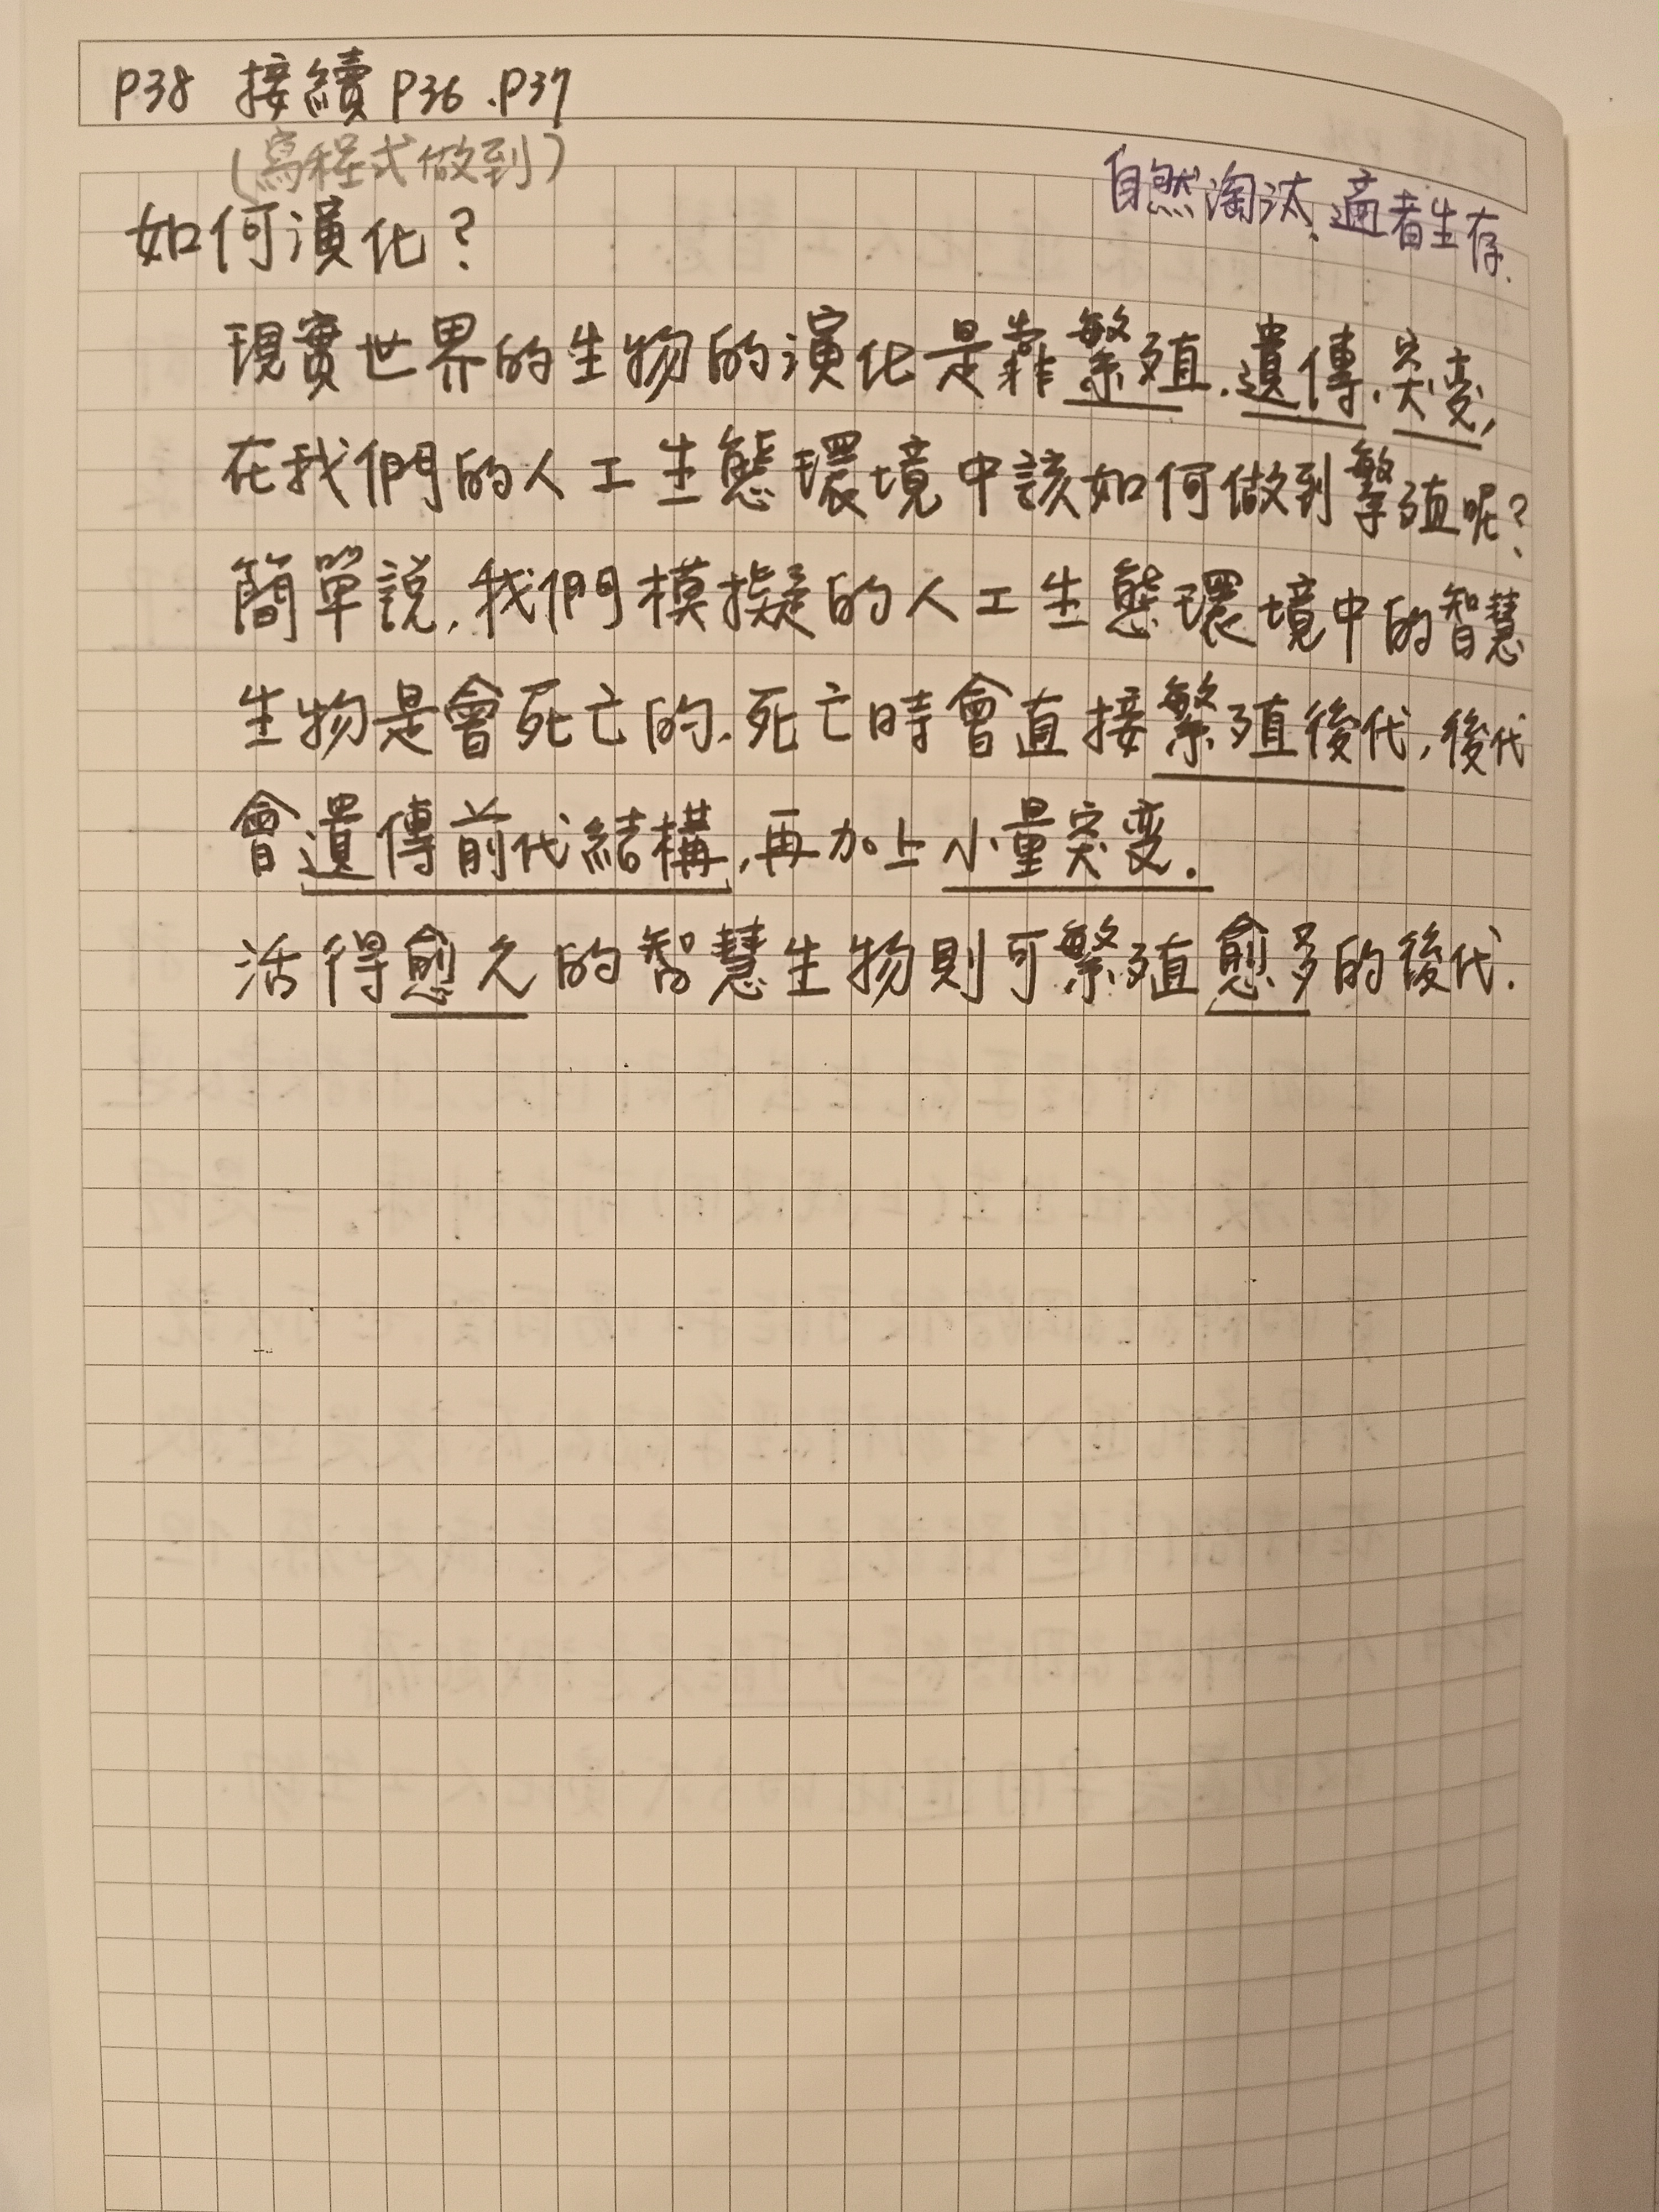 P38 接續 P36、P37
(寫程式做到)
自然淘汰、適者生存.
如何演化?
現實世界的生物的演化是靠繁殖、遺傳、突变,
在我們的人工生態環境中該如何做到繁殖呢?
簡單說,我們模擬的人工生態環境中的智慧
生物是會死亡的.死亡時會直接繁殖後代,後代
會遺傳前代結構,再加上小量突变.
活得愈久的智慧生物則可繁殖愈多的後代.